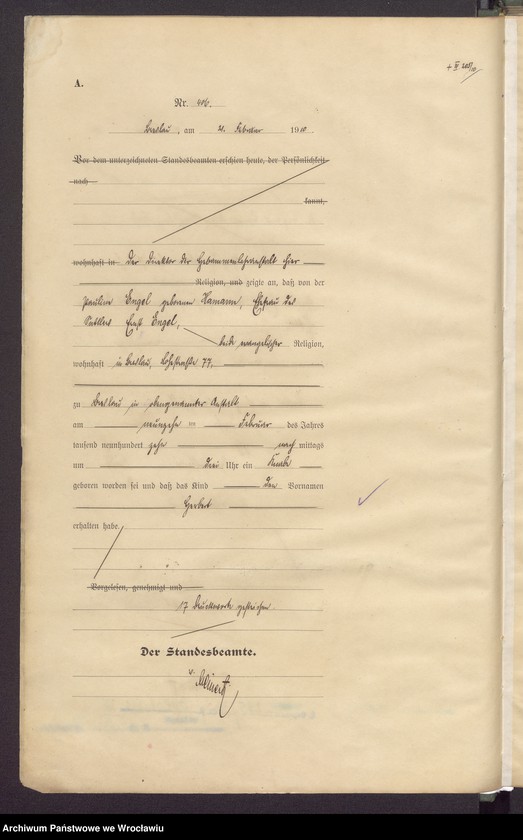 A.
Nr. 406.
Breslau, am 21. Februar 1910.
Vor dem unterzeichneten Standesbeamten erschien heute, der Persönlichkeit
nach
kannt,
wohnhaft in Der Direktor der Hebammenlehranstalt hier
Religion, und zeigte an, daß von der
Pauline Engel geborenen Hamann, Ehefrau des
Sattlers Ernst Engel,
beide evangelischer Religion,
wohnhaft in Breslau, Lohestraße 77,
zu Breslau in obengenannter Anstalt
am neunzehnten Februar des Jahres
tausend neunhundert zehn nach mittags
um drei Uhr ein Knabe
geboren worden sei und daß das Kind den Vornamen
Herbert
erhalten habe.
Vorgelesen, genehmigt und
17 Druckworte gestrichen
Der Standesbeamte.
Archiwum Państwowe we Wrocławiu